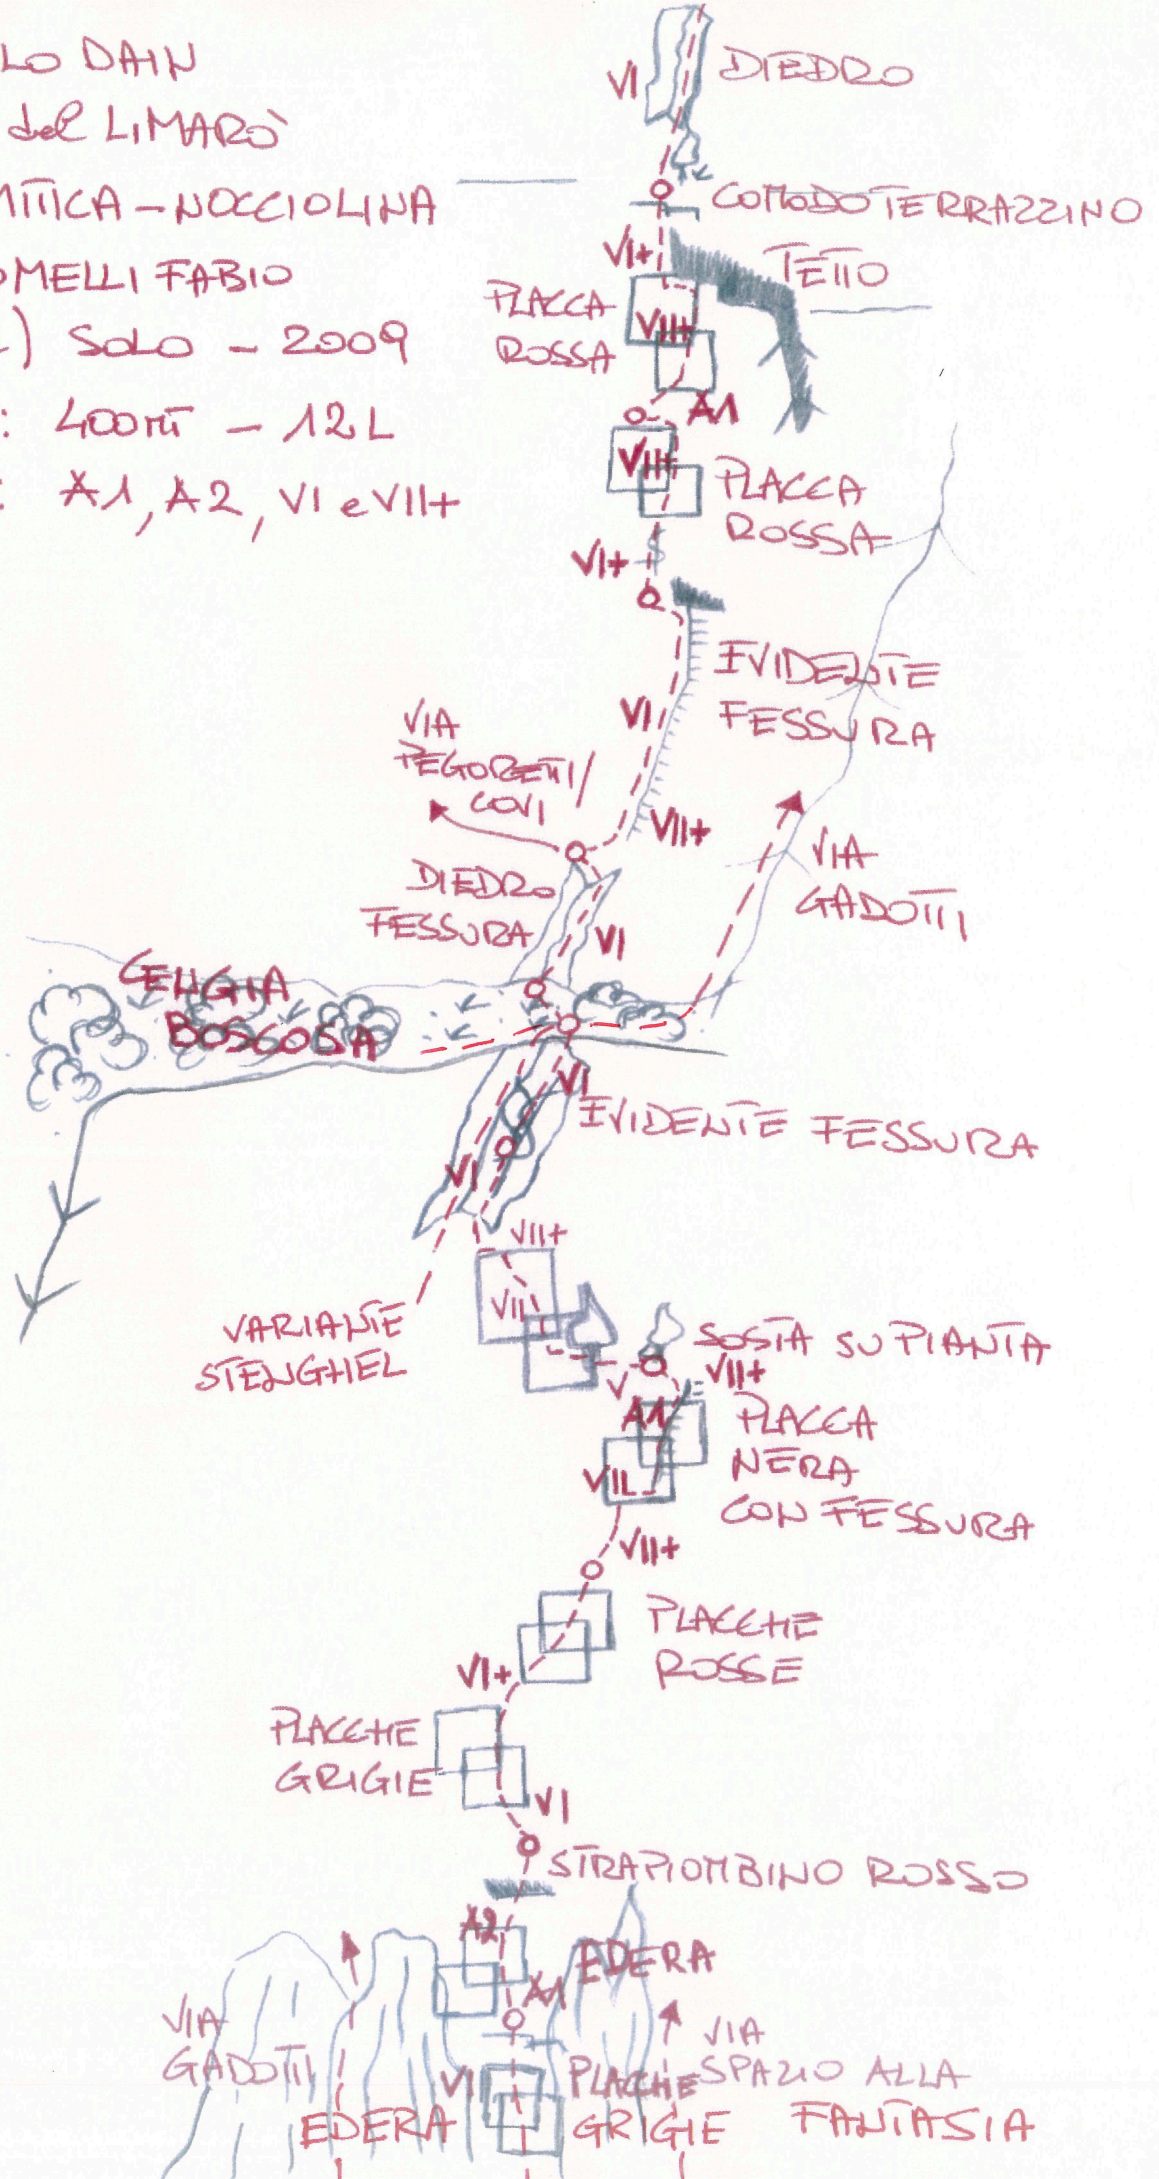 LO DAIN
del LIMARÒ
MITICA – NOCCIOLINA
OMELLI FABIO
) SOLO – 2009
: 400MT – 12L
: A1, A2, VI e VII+
VI
DIEDRO
COMODO TERRAZZINO
VI+
TETTO
PLACCA
ROSSA
VII+
A1
VII+
PLACCA
ROSSA
VI+
EVIDENTE
FESSURA
VI
VIA
PEGORETTI/
COVI
VII+
VIA
GADOTTI
DIEDRO
FESSURA
VI
CENGIA
BOSCOSA
VI
EVIDENTE FESSURA
VI
VII+
VII
VARIANTE
STENGHEL
SOSTA SU PIANTA
V
VII+
A1
PLACCA
NERA
CON FESSURA
VII
VII+
PLACCHE
ROSSE
VI+
PLACCHE
GRIGIE
VI
STRAPIOMBINO ROSSO
A2
EDERA
A1
VIA
GADOTTI
VIA
SPAZIO ALLA
FANTASIA
VI
PLACCHE
GRIGIE
EDERA